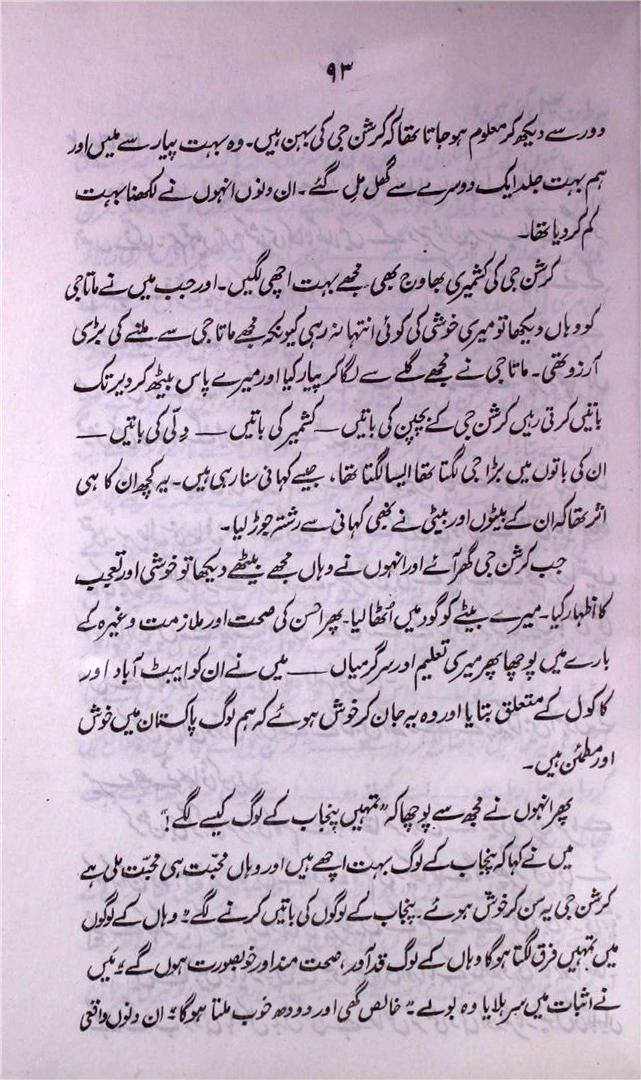 ۹۳
دور سے دیکھ کر معلوم ہو جاتا تھا کہ کرشن جی کی بہن ہیں۔ وہ بہت پیار سے ملیں اور
ہم بہت جلد ایک دوسرے سے گھل مل گئے۔ ان دنوں انہوں نے لکھنا بہت
کم کر دیا تھا۔
کرشن جی کی کشمیری بھاوج بھی مجھے بہت اچھی لگیں۔ اور جب میں نے ماتا جی
کو وہاں دیکھا تو میری خوشی کی کوئی انتہا نہ رہی کیونکہ مجھے ماتا جی سے ملنے کی بڑی
آرزو تھی۔ ماتا جی نے مجھے گلے سے لگا کر پیار کیا اور میرے پاس بیٹھ کر دیر تک
باتیں کرتی رہیں کرشن جی کے بچپن کی باتیں — کشمیر کی باتیں — دِلّی کی باتیں —
ان کی باتوں میں بڑا جی لگتا تھا ایسا لگتا تھا، جیسے کہانی سنا رہی ہیں۔ یہ کچھ ان کا ہی
اثر تھا کہ ان کے بیٹوں اور بیٹی نے بھی کہانی سے رشتہ جوڑ لیا۔
جب کرشن جی گھر آئے اور انہوں نے وہاں مجھے بیٹھے دیکھا تو خوشی اور تعجب
کا اظہار کیا۔ میرے بیٹے کو گود میں اُٹھا لیا۔ پھر احسن کی صحت اور ملازمت وغیرہ کے
بارے میں پوچھا پھر میری تعلیم اور سرگرمیاں — میں نے ان کو ایبٹ آباد اور
کاکول کے متعلق بتایا اور وہ یہ جان کر خوش ہوئے کہ ہم لوگ پاکستان میں خوش
اور مطمئن ہیں۔
پھر انہوں نے مجھ سے پوچھا کہ "تمہیں پنجاب کے لوگ کیسے لگے!"
میں نے کہا کہ پنجاب کے لوگ بہت اچھے ہیں اور وہاں محبّت ہی محبّت ملی ہے
کرشن جی یہ سن کر خوش ہوئے۔ پنجاب کے لوگوں کی باتیں کرنے لگے "وہاں کے لوگوں
میں تمہیں فرق لگتا ہوگا وہاں کے لوگ قد آور، صحت مند اور خوبصورت ہوں گے" مَیں
نے اثبات میں سر ہلایا وہ بولے "خالص گھی اور دودھ خوب ملتا ہوگا" ان دنوں واقعی